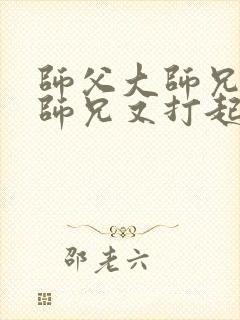 師父大師兄
師兄又打起
邵老六